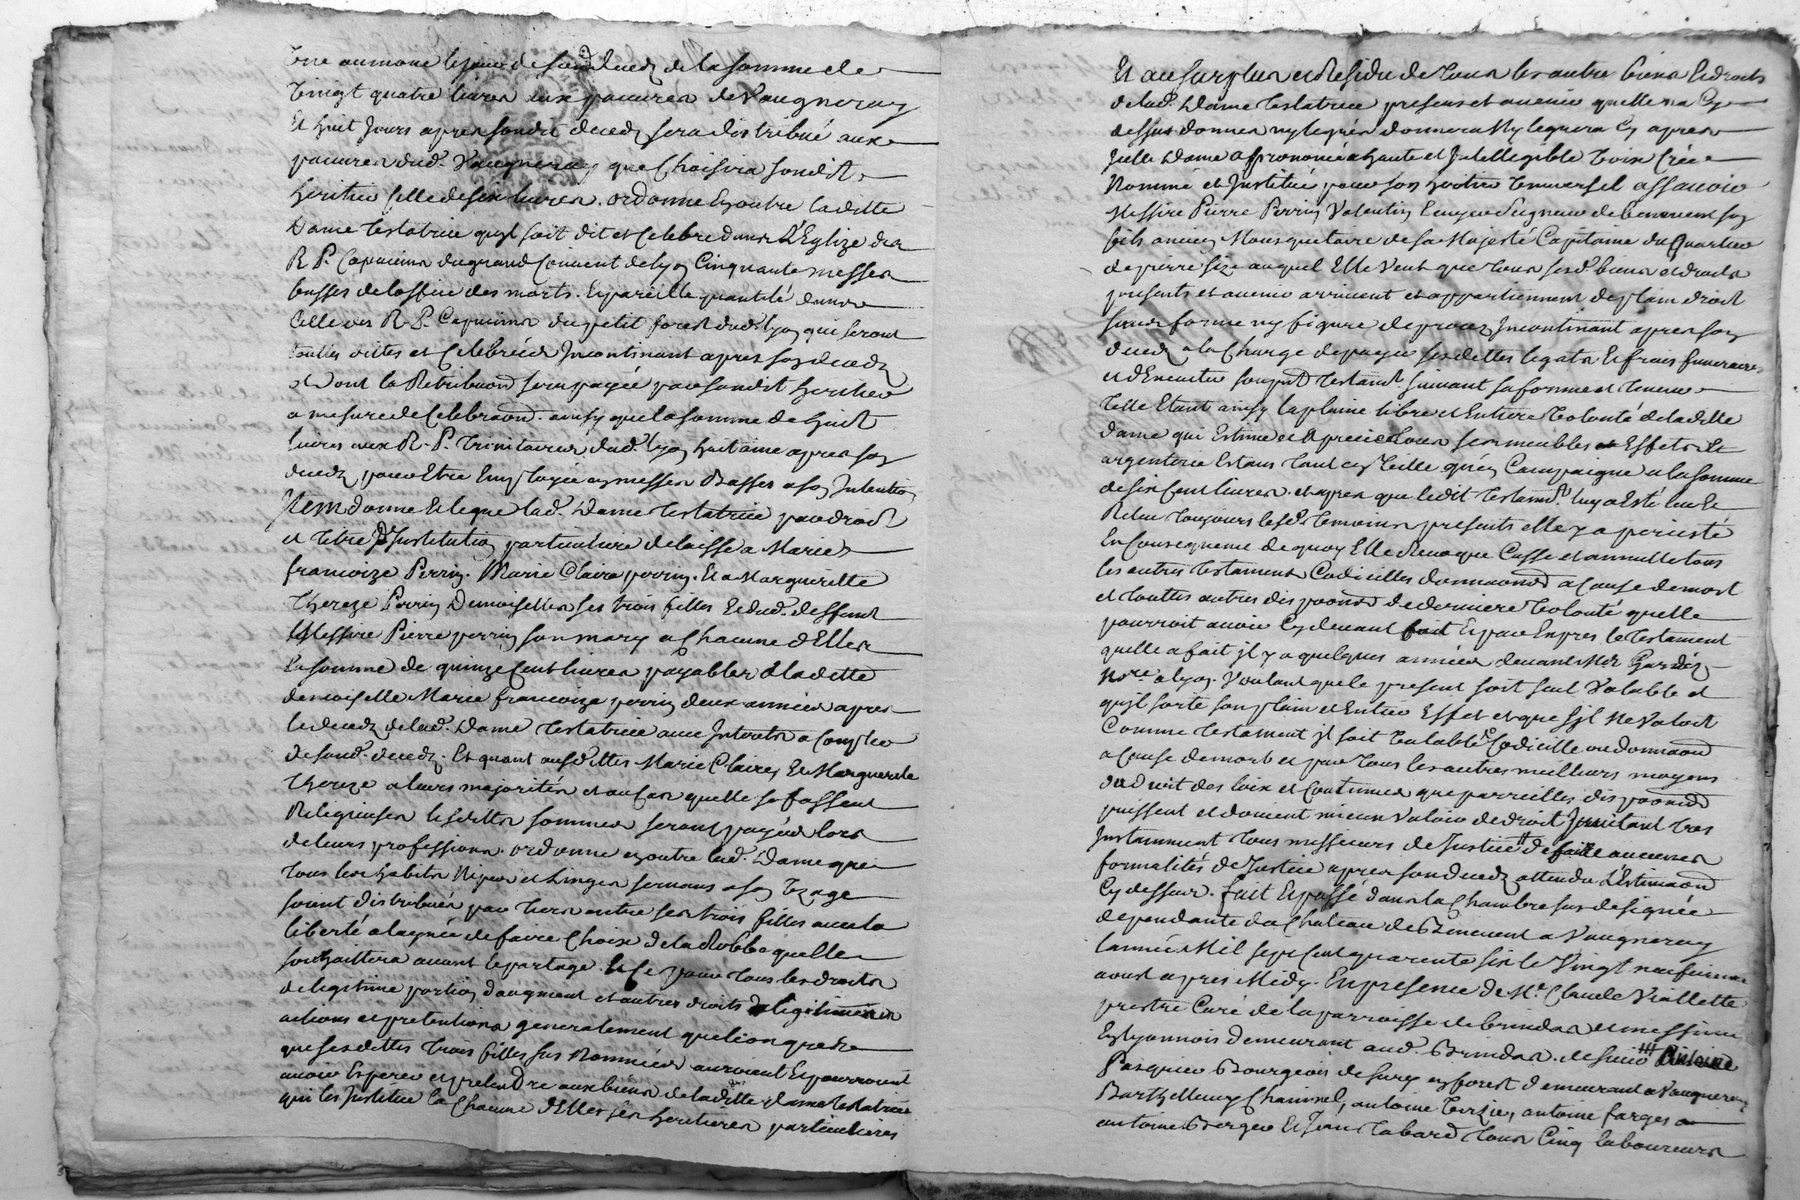 une aumone le jour de sond. deced de la somme de
vingt quatre livres aux pauvres de Vaugneray
Et huit Jours apres sondit deced sera distribué aux
pauvres dud. Vaugneray que Choisira sondit
heritier Celle de six livres. ordonne Enoutre laditte
Dame testatrice quyl soit dit et Celebré dans L'Eglize des
R. P. Capucins du grand Couvent de lyon Cinquante messes
basses de loffice des morts. Et pareille quantité dans
Celle des R. P. Capucins du petit forest dud. lyon qui seront
touttes dittes et Celebrées Incontinant apres son deced
et dont la Retribuaon sera payée par sondit heritier
a mesure de Celebraon. ainsy que la somme de huit
livres aux R. P. Trinitaires dud. lyon huitaine apres son
deced pour Etre Employée en messes Basses a son Intention
Item donne et legue lad. Dame testatrice par droit
et titre d'Institution particuliere delaisse a Marie
francoize Perrin. Marie Claire perrin. Et a Margueritte
thereze Perrin Demoiselles ses trois filles Et dud. deffunt
Messire Pierre perrin son mary a Chacune d'Elles
la somme de quinze Cent livres payables a laditte
demoiselle Marie francoize perrin deux années apres
le deced de lad. Dame testatrice avec Interets a Compter
de sond. deced. Et quant ausdittes Marie Claire, Et Marguerite
thereze a leurs majorités et au Cas quelle se fassent
Religieuses lesdittes sommes seront payées lors
de leurs professions. ordonne enoutre lad. Dame que
tous les habits Nipes et Linges servans a son Uzage
soient distribués par tiers entre ses trois filles avec la
liberté a laynée de faire Choix de la Robbe quelle
souhaittera avant le partage. Et Ce pour tous les droits
de legitime portion d'augment et autres droits
actions et pretentions generalement quelconques
que sesdittes trois filles sus Nommées auroient Et pourroient
avoir Esperer et pretendre aux biens de laditte dame testatrice
qui les Institue Ca Chacune d'Elles ses heritieres particulieres
Et au surplus et Residu de tous les autre biens Et droits
de lad. Dame testatrice presens et avenir quelle na Cy
dessus donnés ny legués donnera Ny leguera Cy apres
Icelle Dame a prononcé a haute et Intelligible voix Crée
Nommé et Institué pour son heritier universel assavoir
Messire Pierre Perrin Valentin Ecuyer Seigneur de benevent son
fils ancien Mousquetaire de sa Majesté Capitaine du Quartier
de pierre size auquel Elle veut que tous sesd. biens et droits
presents et avenir arrivent et appartiennent de plain droit
sans forme ny figure de procez Incontinant apres son
deced a la Charge de payer ses dettes legats Et frais funeraires
et d'Executer son pnt Testamt. suivant sa forme et teneur
telle Etant ainsy la plaine libre et Entiere volonté de laditte
dame qui Estime et Aprecie tous ses meubles Effets Et
argenterie Estans tant en Ville qu'en Campagne a la somme
de six Cent livres. et apres que ledit Testamt. luy a Esté leu Et
Releu toujours lesd. temoins presents elle y a persisté
En Consequence de quoy Elle Revoque Casse et annulle tous
les autres testaments Codicilles donnaons a Cause de mort
et touttes autres dispoons de derniere volonté quelle
pourroit avoir Cy devant fait Et par Expres le testament
quelle a fait jl y a quelques années devant Me
Nore a lyon. Voulant que le present soit seul valable et
quyl sorte son plain et Entier Effet et que Sil Ne valoit
Comme testament jl soit valable Codicille ou donnaon
a Cause de mort et par tous les autres meilleurs moyens
du droit des loix et Coutumes que pareilles dispoons
puissent et doivent mieux valoir de droit tres
Instamment tous messieurs de Justice de faire aucunes
formalités de Justice apres son deced attendu L'Estimaon
Cy dessus. fait Et passé dans la Chambre sus designée
dependante du Chateau de Benevent a Vaugneray
l'année Mil sept Cent quarente six le Vingt neufieme
aoust apres Midy. En presence de Me. Claude Viallette
prestre Curé de la parroisse de brindas et messimi
En lyonnois demeurant aud. Brindas. de Antoine
Pasquier Bourgeois de Sury en forest demeurant a Vaugneray
Barthellemy Chainnel, antoine, antoine farges
antoine Berger Et Jean tabard tous Cinq laboureurs